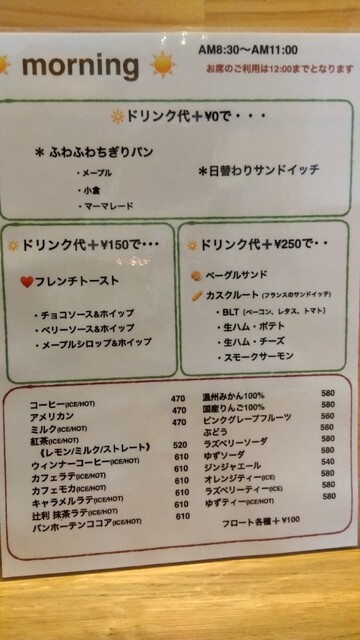 morning
AM8:30〜AM11:00
お席のご利用は12:00までとなります
ドリンク代＋¥0で・・・
＊ふわふわちぎりパン
・メープル
・小倉
・マーマレード
＊日替わりサンドイッチ
ドリンク代＋¥150で・・・
フレンチトースト
・チョコソース&ホイップ
・ベリーソース&ホイップ
・メープルシロップ&ホイップ
ドリンク代＋¥250で・・
ベーグルサンド
カスクルート (フランスのサンドイッチ)
・BLT (ベーコン、レタス、トマト)
・生ハム・ポテト
・生ハム・チーズ
・スモークサーモン
コーヒー(ICE/HOT) 470
アメリカン 470
ミルク(ICE/HOT) 470
紅茶(ICE/HOT)
《レモン/ミルク/ストレート》 520
ウィンナーコーヒー(ICE/HOT) 610
カフェラテ(ICE/HOT) 610
カフェモカ(ICE/HOT) 610
キャラメルラテ(ICE/HOT) 610
辻利 抹茶ラテ(ICE/HOT) 610
バンホーテンココア(ICE/HOT)
温州みかん100% 580
国産りんご100% 580
ピンクグレープフルーツ 560
ぶどう 560
ラズベリーソーダ 580
ゆずソーダ 580
ジンジャエール 540
オレンジティー(ICE) 580
ラズベリーティー(ICE) 580
ゆずティー(ICE/HOT) 580
フロート各種＋¥100